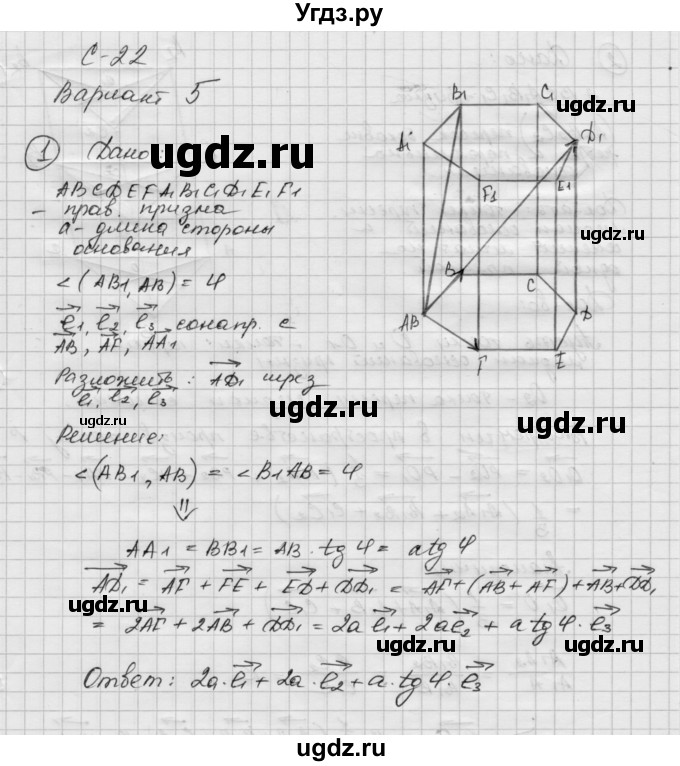 Угдз.ру
С-22
Вариант 5
① Дано
ABCDEFA₁B₁C₁D₁E₁F₁
- прав. призма
a - длина стороны
основания
∠(AB₁, AB) = φ
e₁, e₂, e₃ сонапр. с
AB, AF, AA₁
Разложить: AD₁ через
e₁, e₂, e₃
Решение:
∠(AB₁, AB) = ∠B₁AB = φ
⇓
AA₁ = BB₁ = AB · tg φ = a tg φ
AD₁ = AF + FE + ED + DD₁ = AF + (AB + AF) + AB + DD₁
= 2AF + 2AB + DD₁ = 2a e₁ + 2a e₂ + a tg φ · e₃
Ответ: 2a · e₁ + 2a · e₂ + a · tg φ · e₃
B₁
C₁
A₁
D₁
F₁
E₁
B
C
AB
D
F
E
ugdz.ru
ugdz.ru
ugdz.ru
ugdz.ru
ugdz.ru
ugdz.ru
ugdz.ru
ugdz.ru
ugdz.ru
ugdz.ru
ugdz.ru
ugdz.ru
ugdz.ru